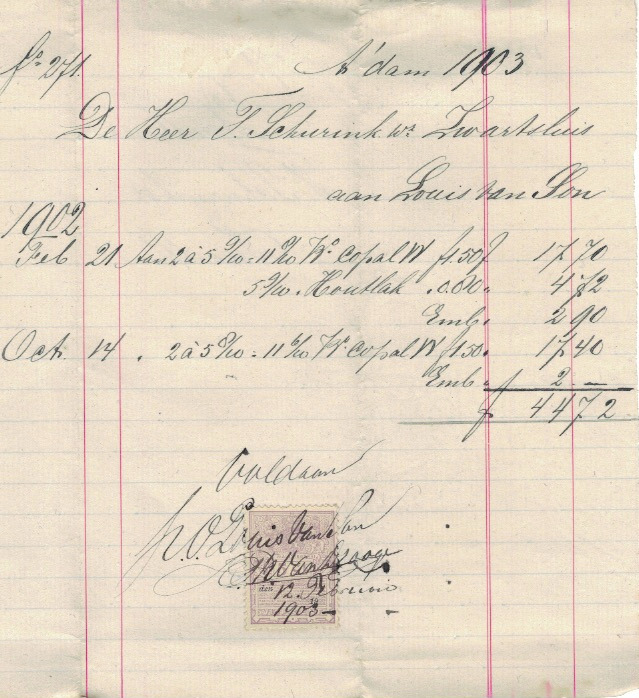 fo 271.
A'dam 1903
De Heer F. Schurink. Wz Zwartsluis
aan Louis van Son
1902
Feb 21 Aan 2 à 5 9/10 = 11 8/10 Ko copal W f 1.50 f 17 70
5 9/10 . Houtlak . 0.80 " 4 72
Emb. " 2 90
Oct. 14 . 2 à 5 8/10 = 11 6/10 Ko copal W f 1.50 " 17 40
Emb " 2 —
f 44 72
Voldaan
p.o. Louis van Son
den 12. Februari
1903 —